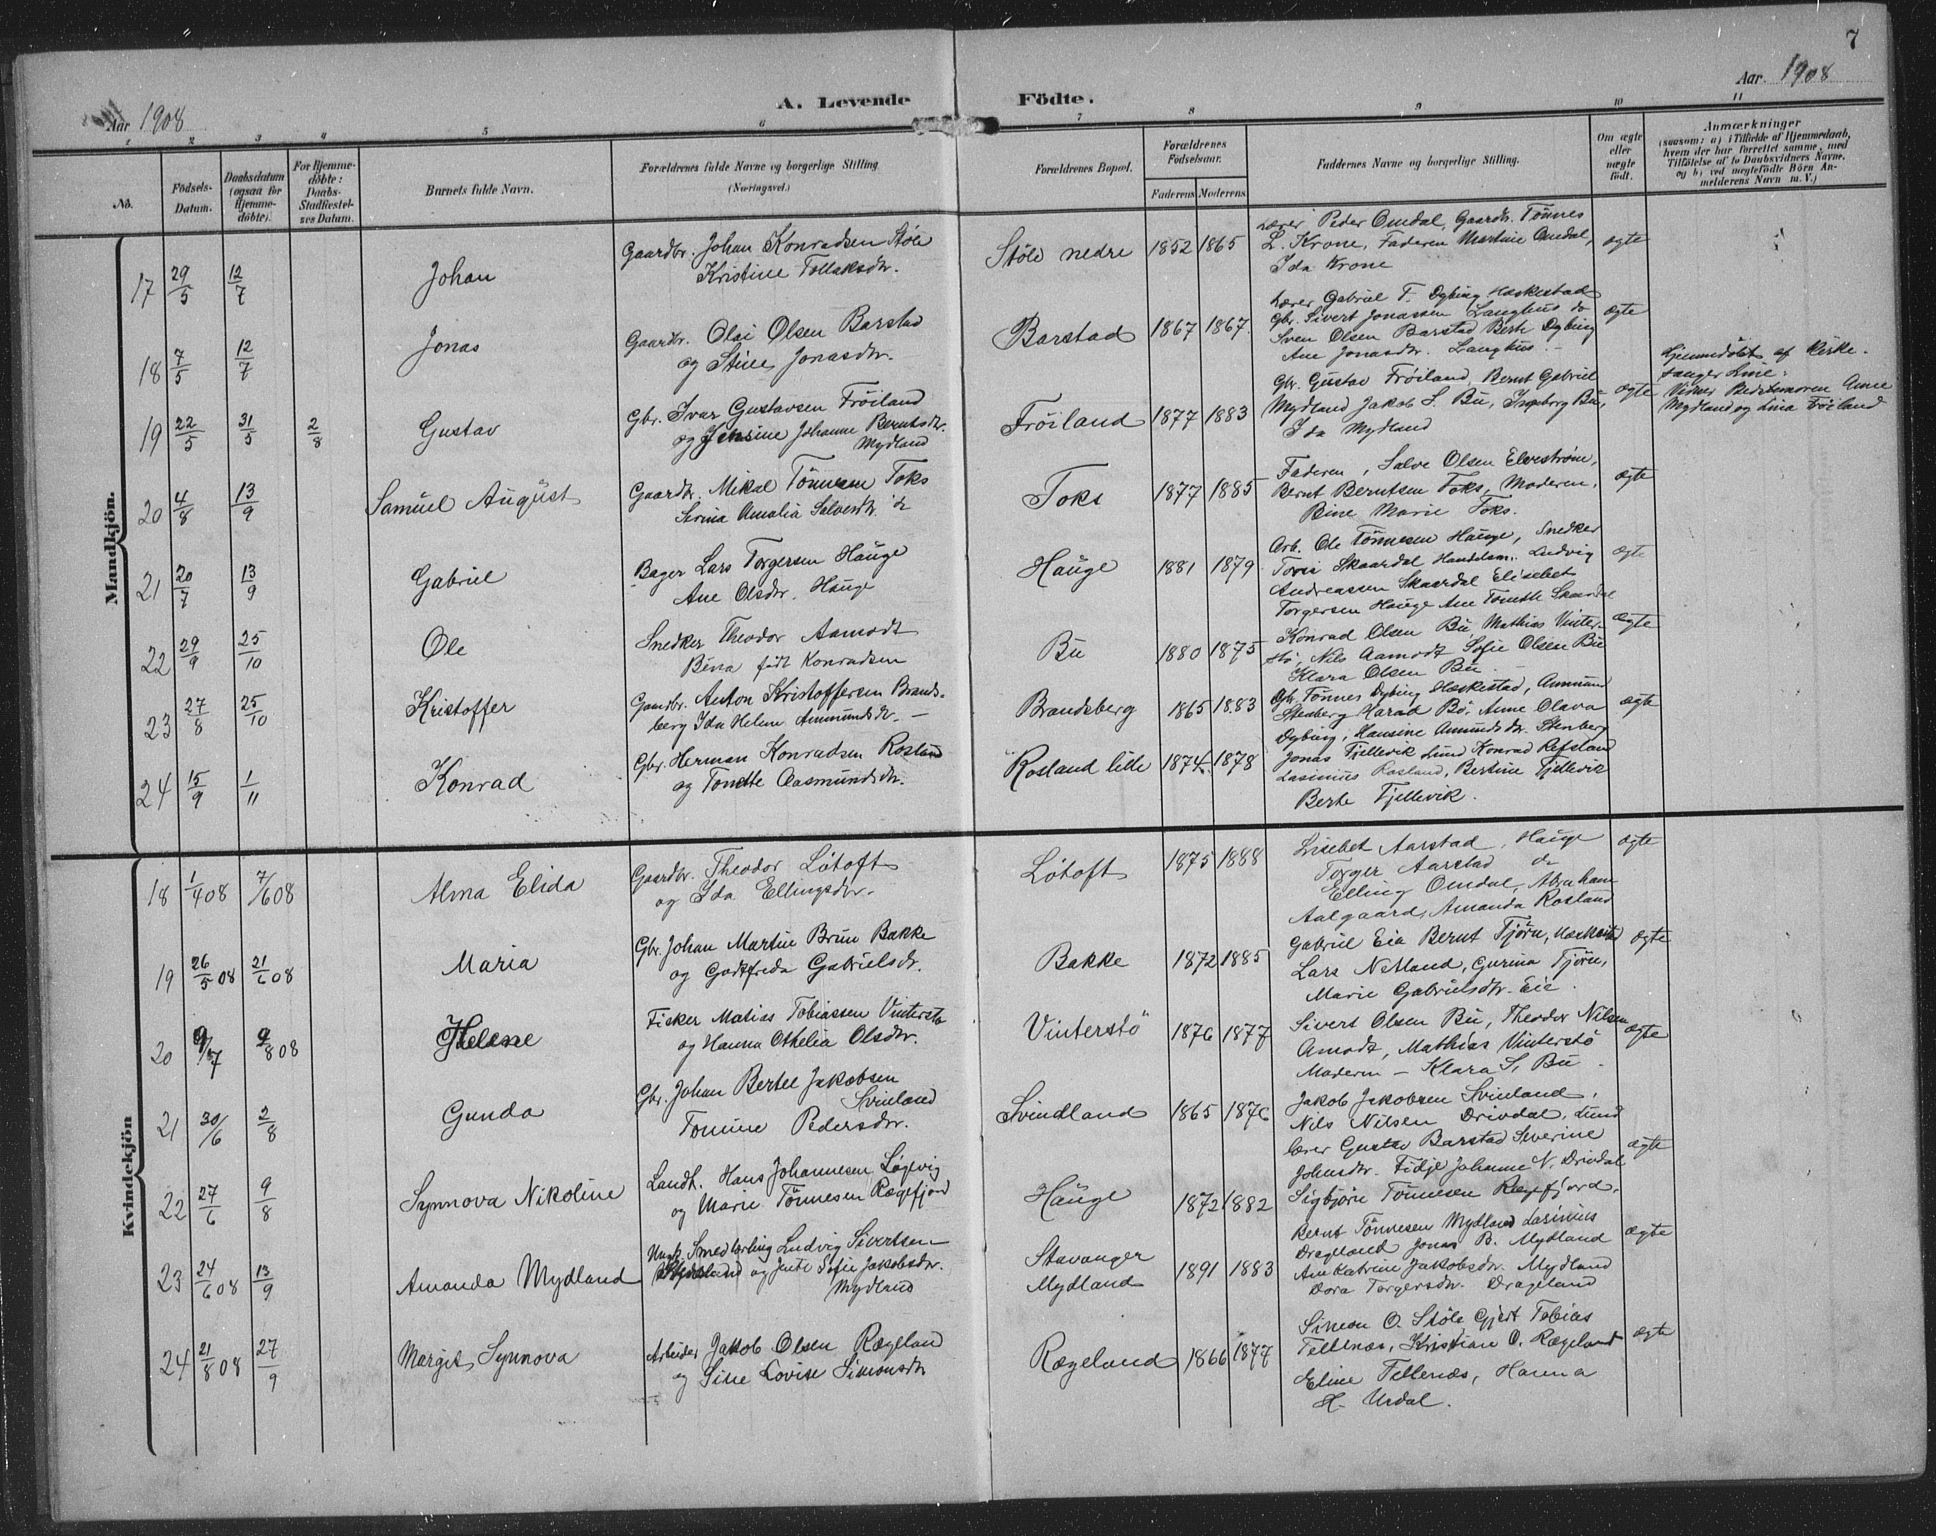 7
Aar 1908
A. Levende Födte.
Aar 1908
1 2 3 4 5 6 7 8 9 10 11
No.
Födsels-Datum.
Daabsdatum (ogsaa for Hjemmedöbte).
For Hjemmedöbte: Daabs-Stadfæstelses Datum.
Barnets fulde Navn.
Forældrenes fulde Navne og borgerlige Stilling (Næringsvei.)
Forældrenes Bopæl.
Forældrenes Födselsaar.
Faderens Moderens
Faddernes Navne og borgerlige Stilling.
Om ægte eller uægte födt.
Anmærkninger
(saasom: a) i Tilfælde af Hjemmedaab, hvem der har forrettet samme, med Tilföielse af to Daabsvidners Navne, og b) ved uægtefödte Börn Anmelderens Navn m. V.)
Mandkjön.
17 29/5 12/7 Johan
Gaardbr. Johan Konradsen Støle
Kristine Tollaksdtr.
Støle nedre 1852 1865
Lærer Peder Omdal, Gaardbr. Tönnes
L. Krone, Faderen Martine Omdal,
Ida Krone
ægte
18 7/5 12/7 Jonas
Gaardbr. Olai Olsen Barstad
og Stine Jonasdtr.
Barstad 1867 1867
Lærer Gabriel T. Dybing Haskestad
Gbr. Sivert Jonassen Langhus do
Sven Olsen Barstad Berte Dybing
Ane Jonasdtr. Langhus.
ægte
19 22/5 31/5 2/8 Gustav
Gbr. Ivar Gustavsen Fröiland
og Jensine Johanne Berntsdtr.
Mydland
Fröiland 1877 1883
Gbr. Gustav Fröiland, Bernt Gabriel
Mydland Jakob S. Bu, Ingeborg Bu,
Ida Mydland
ægte
Hjemmedöbt af Kirke-
sanger Line.
Vidner Bedstemoren Anne
Mydland og Lina Fröiland
20 4/8 13/9 Samuel August
Gaardbr. Mikal Tönnesen Toks
Serina Amalia Salvesdtr.
Toks 1877 1885
Faderen, Salve Olsen Elvestrøm,
Bernt Berntsen Toks, Moderen,
Bine Marie Toks.
ægte
21 20/7 13/9 Gabriel
Bager Lars Torgersen Hauge
Ane Olsdtr. Hauge
Hauge 1881 1879
Arb. Ole Tönnesen Hauge, Snedker
Tores Skaardal Handelsm. Ludvig
Andreassen Skaardal Elisebet
Torgersen Hauge Ane Tomette Skaardal
ægte
22 29/9 25/10 Ole
Snedker Theodor Aamodt
Bina födt Konradsen
Bu 1880 1875
Konrad Olsen Bu Mathias Vinter-
stø, Nils Aamodt Sofie Olsen Bu
Klara Olsen Bu
ægte
23 27/8 25/10 Kristoffer
Gaardbr. Anton Kristoffersen Brands-
berg Ida Helene Ammundsdtr.
Brandsberg 1865 1883
Gbr. Tönnes Dybing Haskestad, Ammund
Stenberg Harald Bö, Anne Olava
Dybing, Hansine Amundsdtr. Stenberg
ægte
24 15/9 1/11 Konrad
Gbr. Herman Konradsen Rosland
og Tomette Aasmundsdtr.
Rosland lille 1874 1878
Jonas Fjellevik Lund Konrad Refsland
Lasimius Rosland, Bertine Fjellevik
Berte Fjellevik.
Kvindekjön
18 1/4 08 7/6 08 Alma Elida
Gaardbr. Theodor Lötoft
og Ida Ellingsdtr.
Lötoft 1875 1888
Lisebet Aarstad, Hauge
Torger Aarstad do
Elling Omdal, Abraham
Aalgaard, Amanda Rosland
ægte
19 26/5 08 21/6 08 Maria
Gbr. Johan Martin Brun Bakke
og Godtfreda Gabrielsdtr.
Bakke 1872 1885
Gabriel Eia Bernt Tjörn, Haskestad
Lars Netland, Gurina Tjörn,
Marie Gabrielsdtr. Eie.
ægte
20 9/7 9/8 08 Helene
Fisker Matias Tobiassen Vinterstø
og Hanna Othelia Olsdtr.
Vinterstö 1876 1877
Sivert Olsen Bu, Theodor Nilsen
Amodt, Mathias Vinterstö
Moderen – Klara S. Bu
ægte
21 30/6 2/8 Gunda
Gbr. Johan Bertel Jakobsen
Svinland
Tomine Pedersdtr.
Svindland 1865 1876
Jakob Jakobsen Svinland,
Nils Nilsen Drivdal, Lund
Lærer Gustav Barstad Severine
Johnsdtr. Fidje Johanne N. Drivdal
ægte
22 27/6 9/8 Synnova Nikoline
Landh. Hans Johannesen Løgevig
og Marie Tönnesen Rægefjord
Hauge 1872 1882
Sigbjörn Tönnesen Rægefjord,
23 24/6 08 13/9 Amanda Mydland
Ungk. Smedlærling Ludvig Sivertsen
og Jente Sofie Jakobsdtr.
Mydland
Stavanger
Mydland
1891 1883
Bernt Tönnesen Mydland Lasimius
Drageland Jonas B. Mydland
Ane Katrine Jakobsdtr. Mydland
Dora Torgersdtr. Drageland
ægte
24 21/8 08 27/9 Margit Synnova
Arbeider Jakob Olsen Rægeland
og Sine Lovise Simonsdtr
Rægeland 1866 1877
Simeon O. Støle Gjert Tobias
Tellenæs, Kristian O. Rægeland
Eline Tellenæs, Hanna
H. Urdal.
ægte